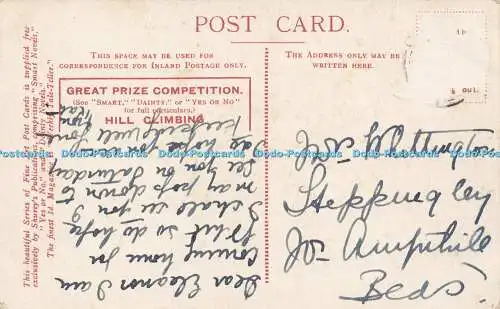 POST CARD.
THIS SPACE MAY BE USED FOR
CORRESPONDENCE FOR INLAND POSTAGE ONLY.
THE ADDRESS ONLY MAY BE
WRITTEN HERE.
GREAT PRIZE COMPETITION.
(SEE "SMART," "DAINTY," OR "YES OR NO"
for full particulars.)
HILL CLIMBING
This beautiful Series of Fine Art Post Cards is supplied free
exclusively by Shurey's Publications, comprising "Smart Novels,"
"Yes or No," and "Dainty Novels."
The finest 1d. Magazines Weekly Tale-Teller.
Dear Eleanor I am
Coming home for
so do hope
I shall see you I
may pop down to
see you on Saturday
do hope you are
keeping well
Steppingley
Nr Ampthill
Beds.
Postcards-Postcards-Postcards